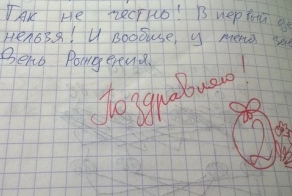 Так не честно! В первый
нельзя! И вообще, у меня
День Рождения.
Поздравляю!
2